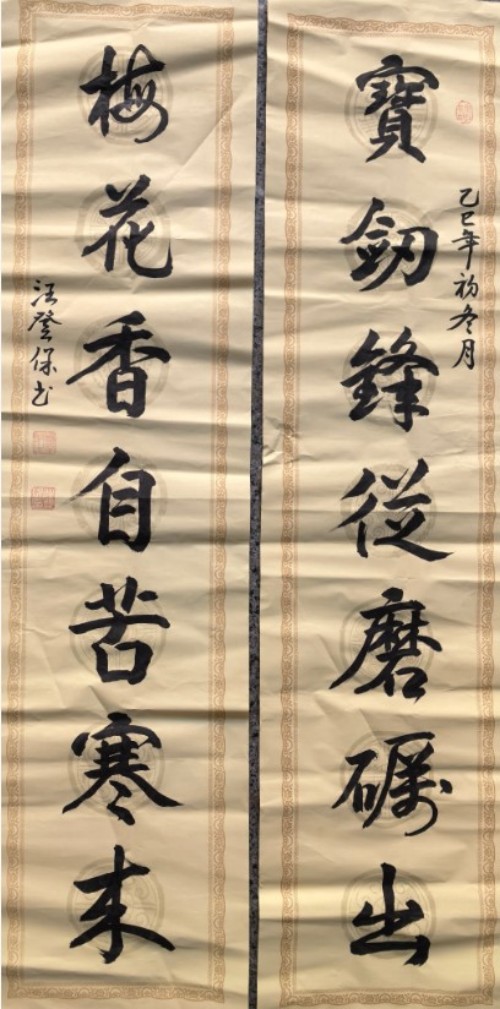 乙巳年初冬月
寶劔鋒從磨礪出
梅花香自苦寒来
汪登保书